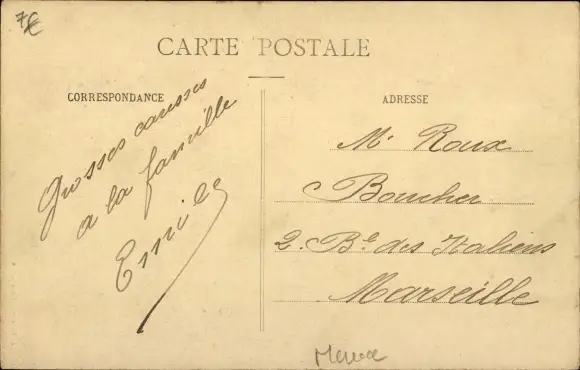 7€
CARTE POSTALE
CORRESPONDANCE
ADRESSE
Grosses causses
a la famille
Emile
Mr Roux
Boucher
2. Bd des Italiens
Marseille